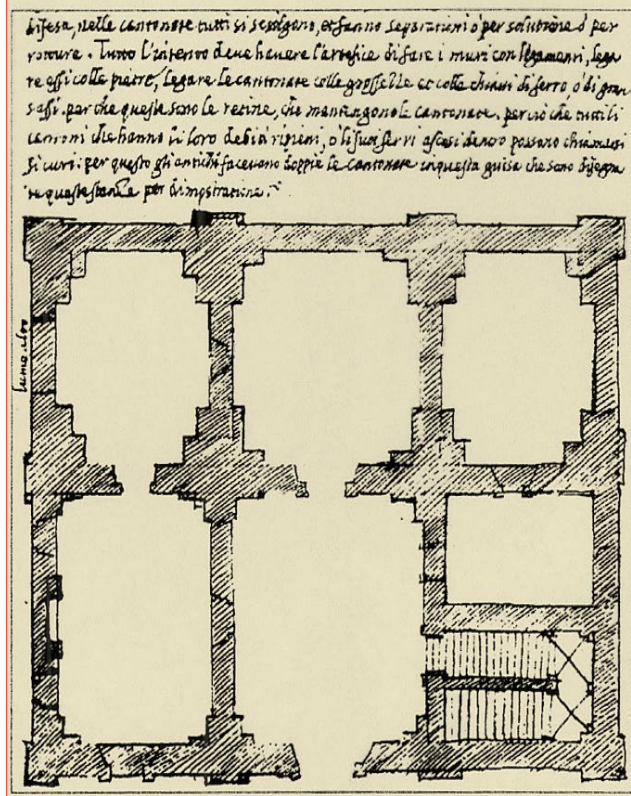 difesa, nelle cantonate tutti si sciolgono, et fanno separationi ò per solutione ò per
rotture. Tutto l'intento deve havere l'artefice di fare i muri con legamenti, lega
re essi colle pietre, legare le cantonate colle grosselle et colle chiavi di ferro, ò di gran
sassi. perche queste sono le retine, che mantengono le cantonate. perciò che tutti li
cantoni che hanno li loro debiti ripieni, ò li suoi ferri ascosi dentro possono chiamarsi
sicuri. per questo gli antichi facevano doppie le cantonate in questa guisa che sono disegna
te queste stanze per dimostratione.